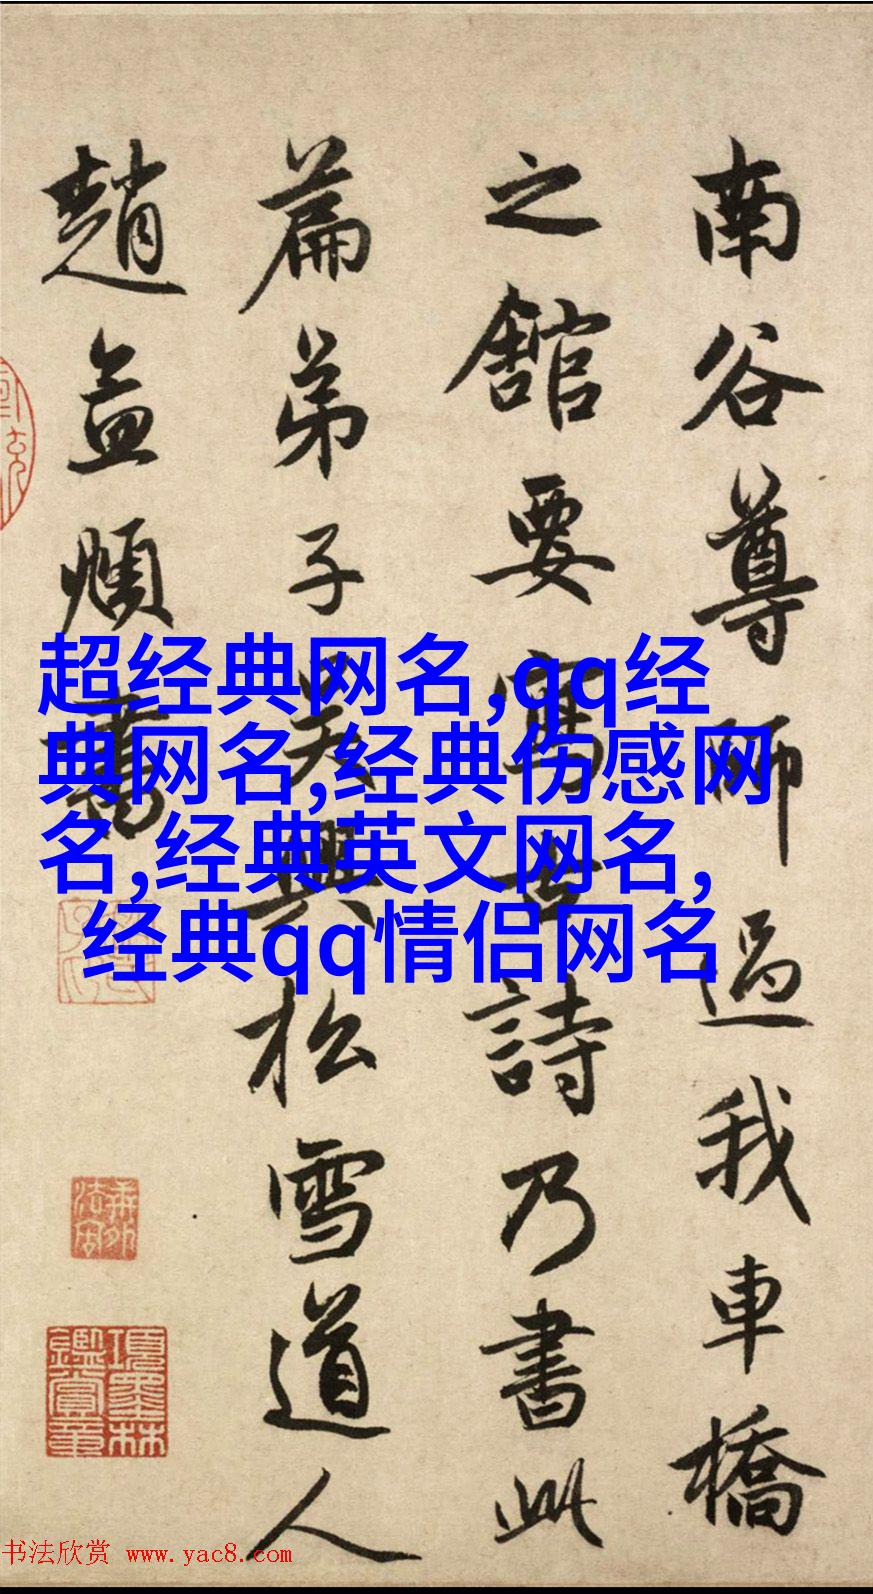 南谷尊師過我車橋
之舘要詩乃書此
篇弟子吳興松雪道人
趙孟頫書
超经典网名,qq经
典网名,经典伤感网
名,经典英文网名,
经典qq情侣网名
項墨林鑑賞章
书法欣赏 www.yac8.com